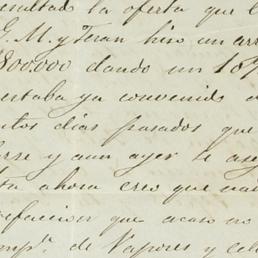 resultado la oferta que l
G. M. y Teran hizo un arr
800.000 dando un 10%
estaba ya convenido
tos dias pasados que
rse y aun ayer te ase
ta ahora creo que
efaccion que acaso no
mpª. de Vapores y